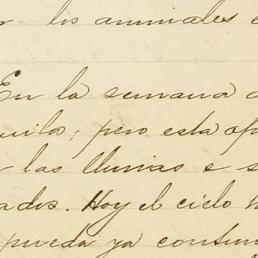 los animales
En la semana
pero esta
las lluvias e s
ados. Hoy el cielo h
pueda ya contin